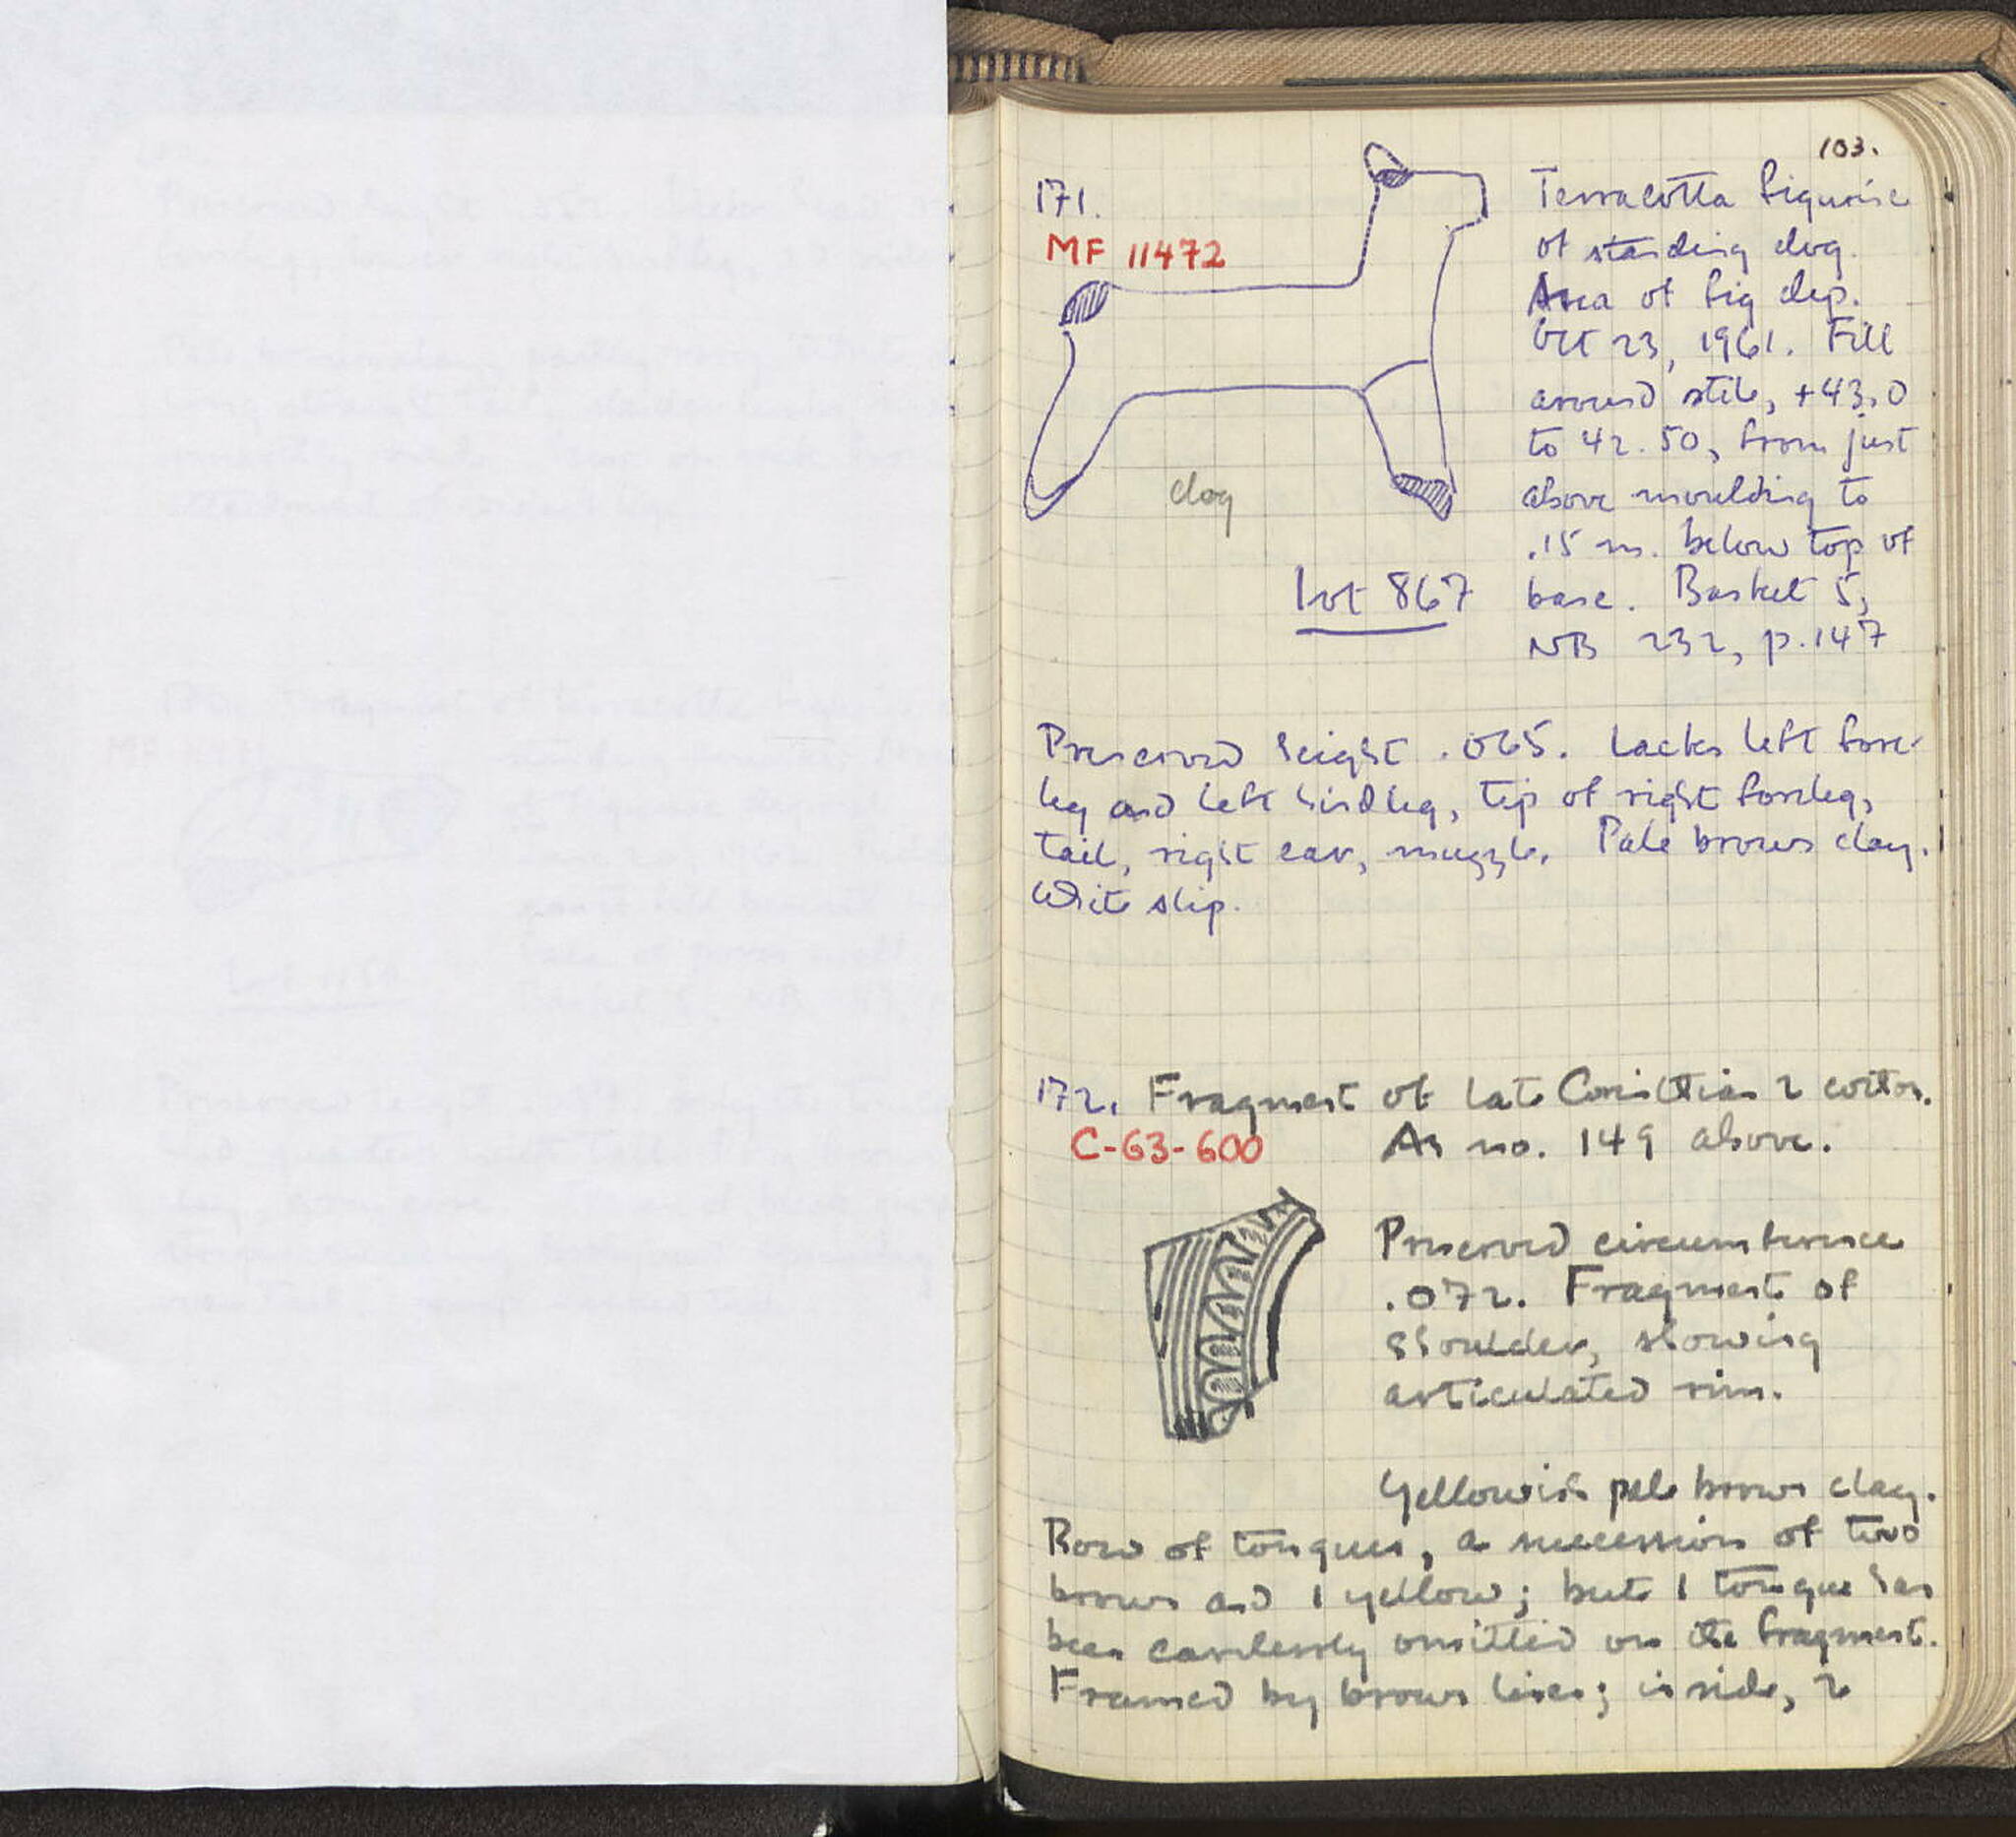 103.
171.
MF 11472
Terracotta figurine
of standing dog.
Area of fig dep.
Oct 23, 1961. Fill
around stele, +43.0
to 42.50, from just
above moulding to
.15 m. below top of
base. Basket 5,
NB 232, p.147
dog
Lot 867
Preserved height .065. Lacks left fore-
leg and left hindleg, tip of right foreleg,
tail, right ear, muzzle. Pale brown clay.
White slip.
172. Fragment of Late Corinthian 2
C-63-600
As no. 149 above.
Preserved circumference
.072. Fragment of
shoulder, showing
articulated rim.
Yellowish pale brown clay.
Row of tongues, a succession of two
brown and 1 yellow; but 1 tongue has
been carelessly omitted on the fragment.
Framed by brown lines; inside, 2